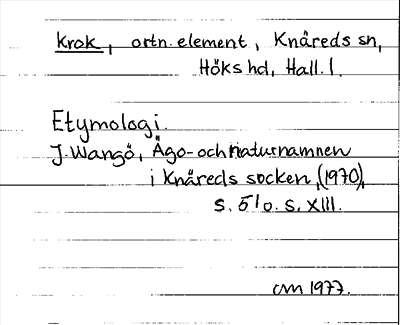 krok, ortn.element, Knäreds sn,
Höks hd, Hall. l.
Etymologi.
J. Wangö, Ägo- och naturnamnen
i Knäreds socken, (1970),
s. 51 o. s. XIII.
CM 1977.